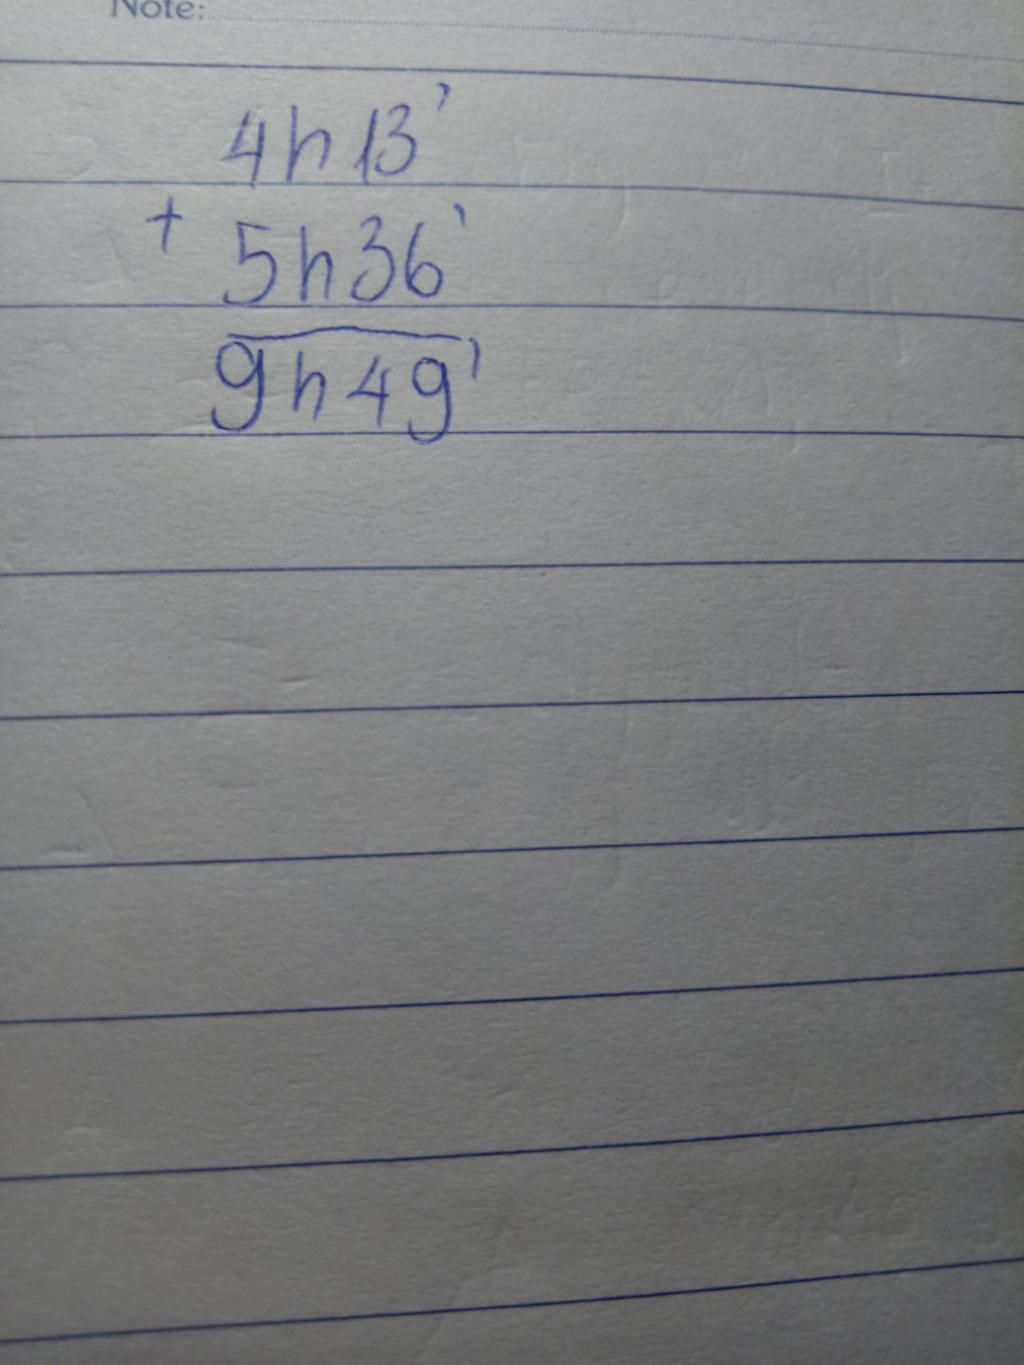 Note:
4h13'
+ 5h36'
9h49'